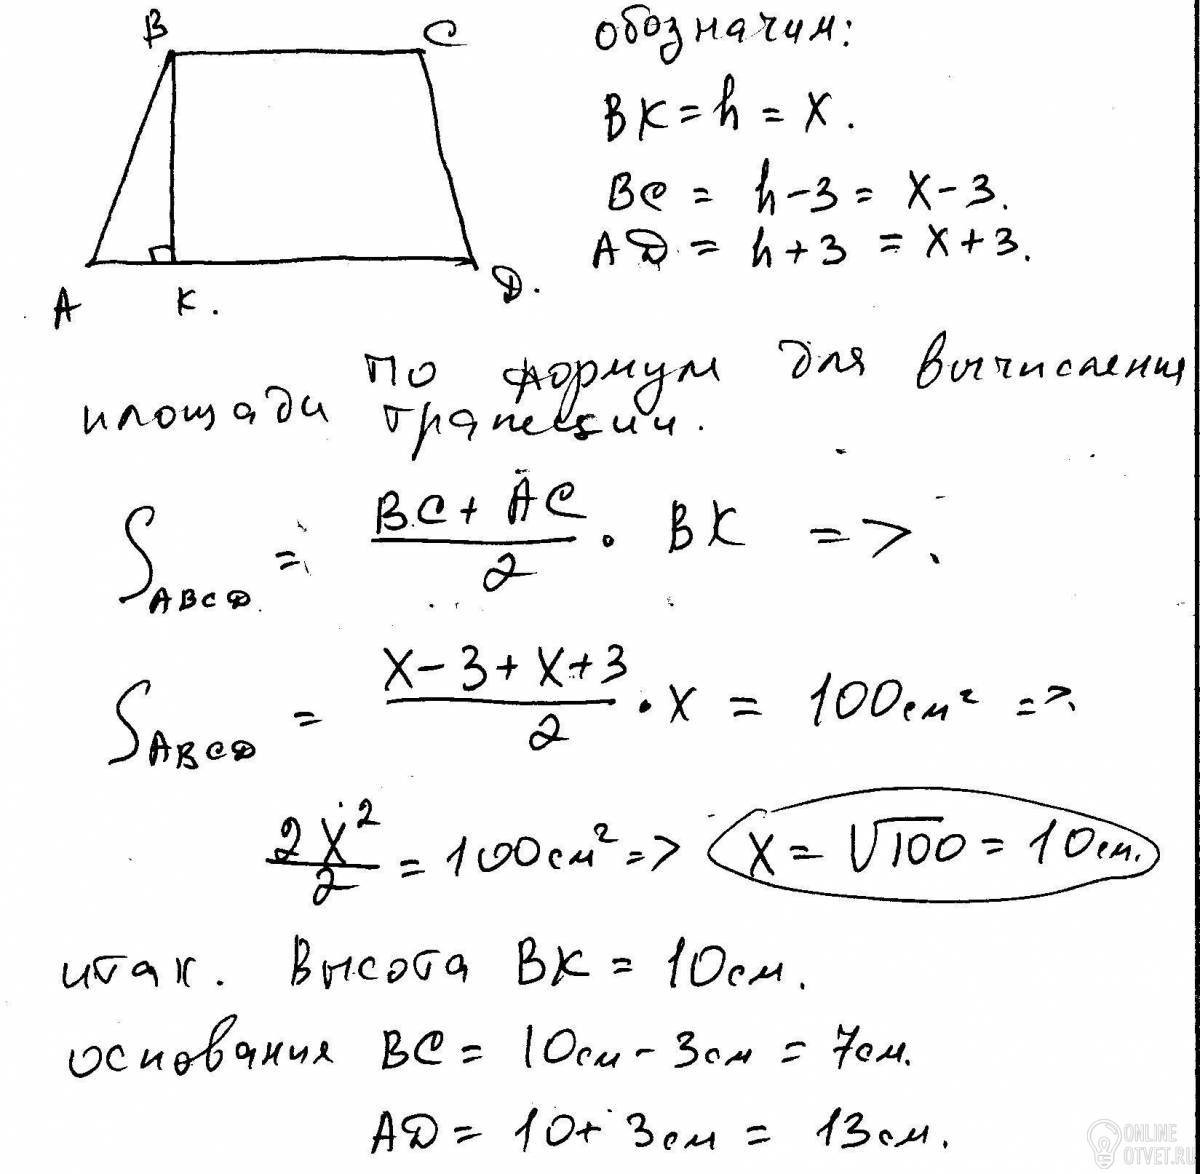 B C
A K. D.
обозначим:
BK = h = X.
BC = h - 3 = X - 3.
AD = h + 3 = X + 3.
По формул для вычисления
площади трапеции.
S ABCD = (BC + AC)/2 · BK =>
S ABCD = (X - 3 + X + 3)/2 · X = 100 см² =>
2X²/2 = 100 см² => X = √100 = 10 см.
итак. Высота BK = 10 см.
основания BC = 10 см - 3 см = 7 см.
AD = 10 + 3 см = 13 см.
ONLINE
OTVET.RU